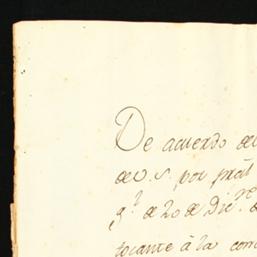 De acuerdo de
de V. S. por prãl
g.l de 20 de Dic.re
tocante à la com